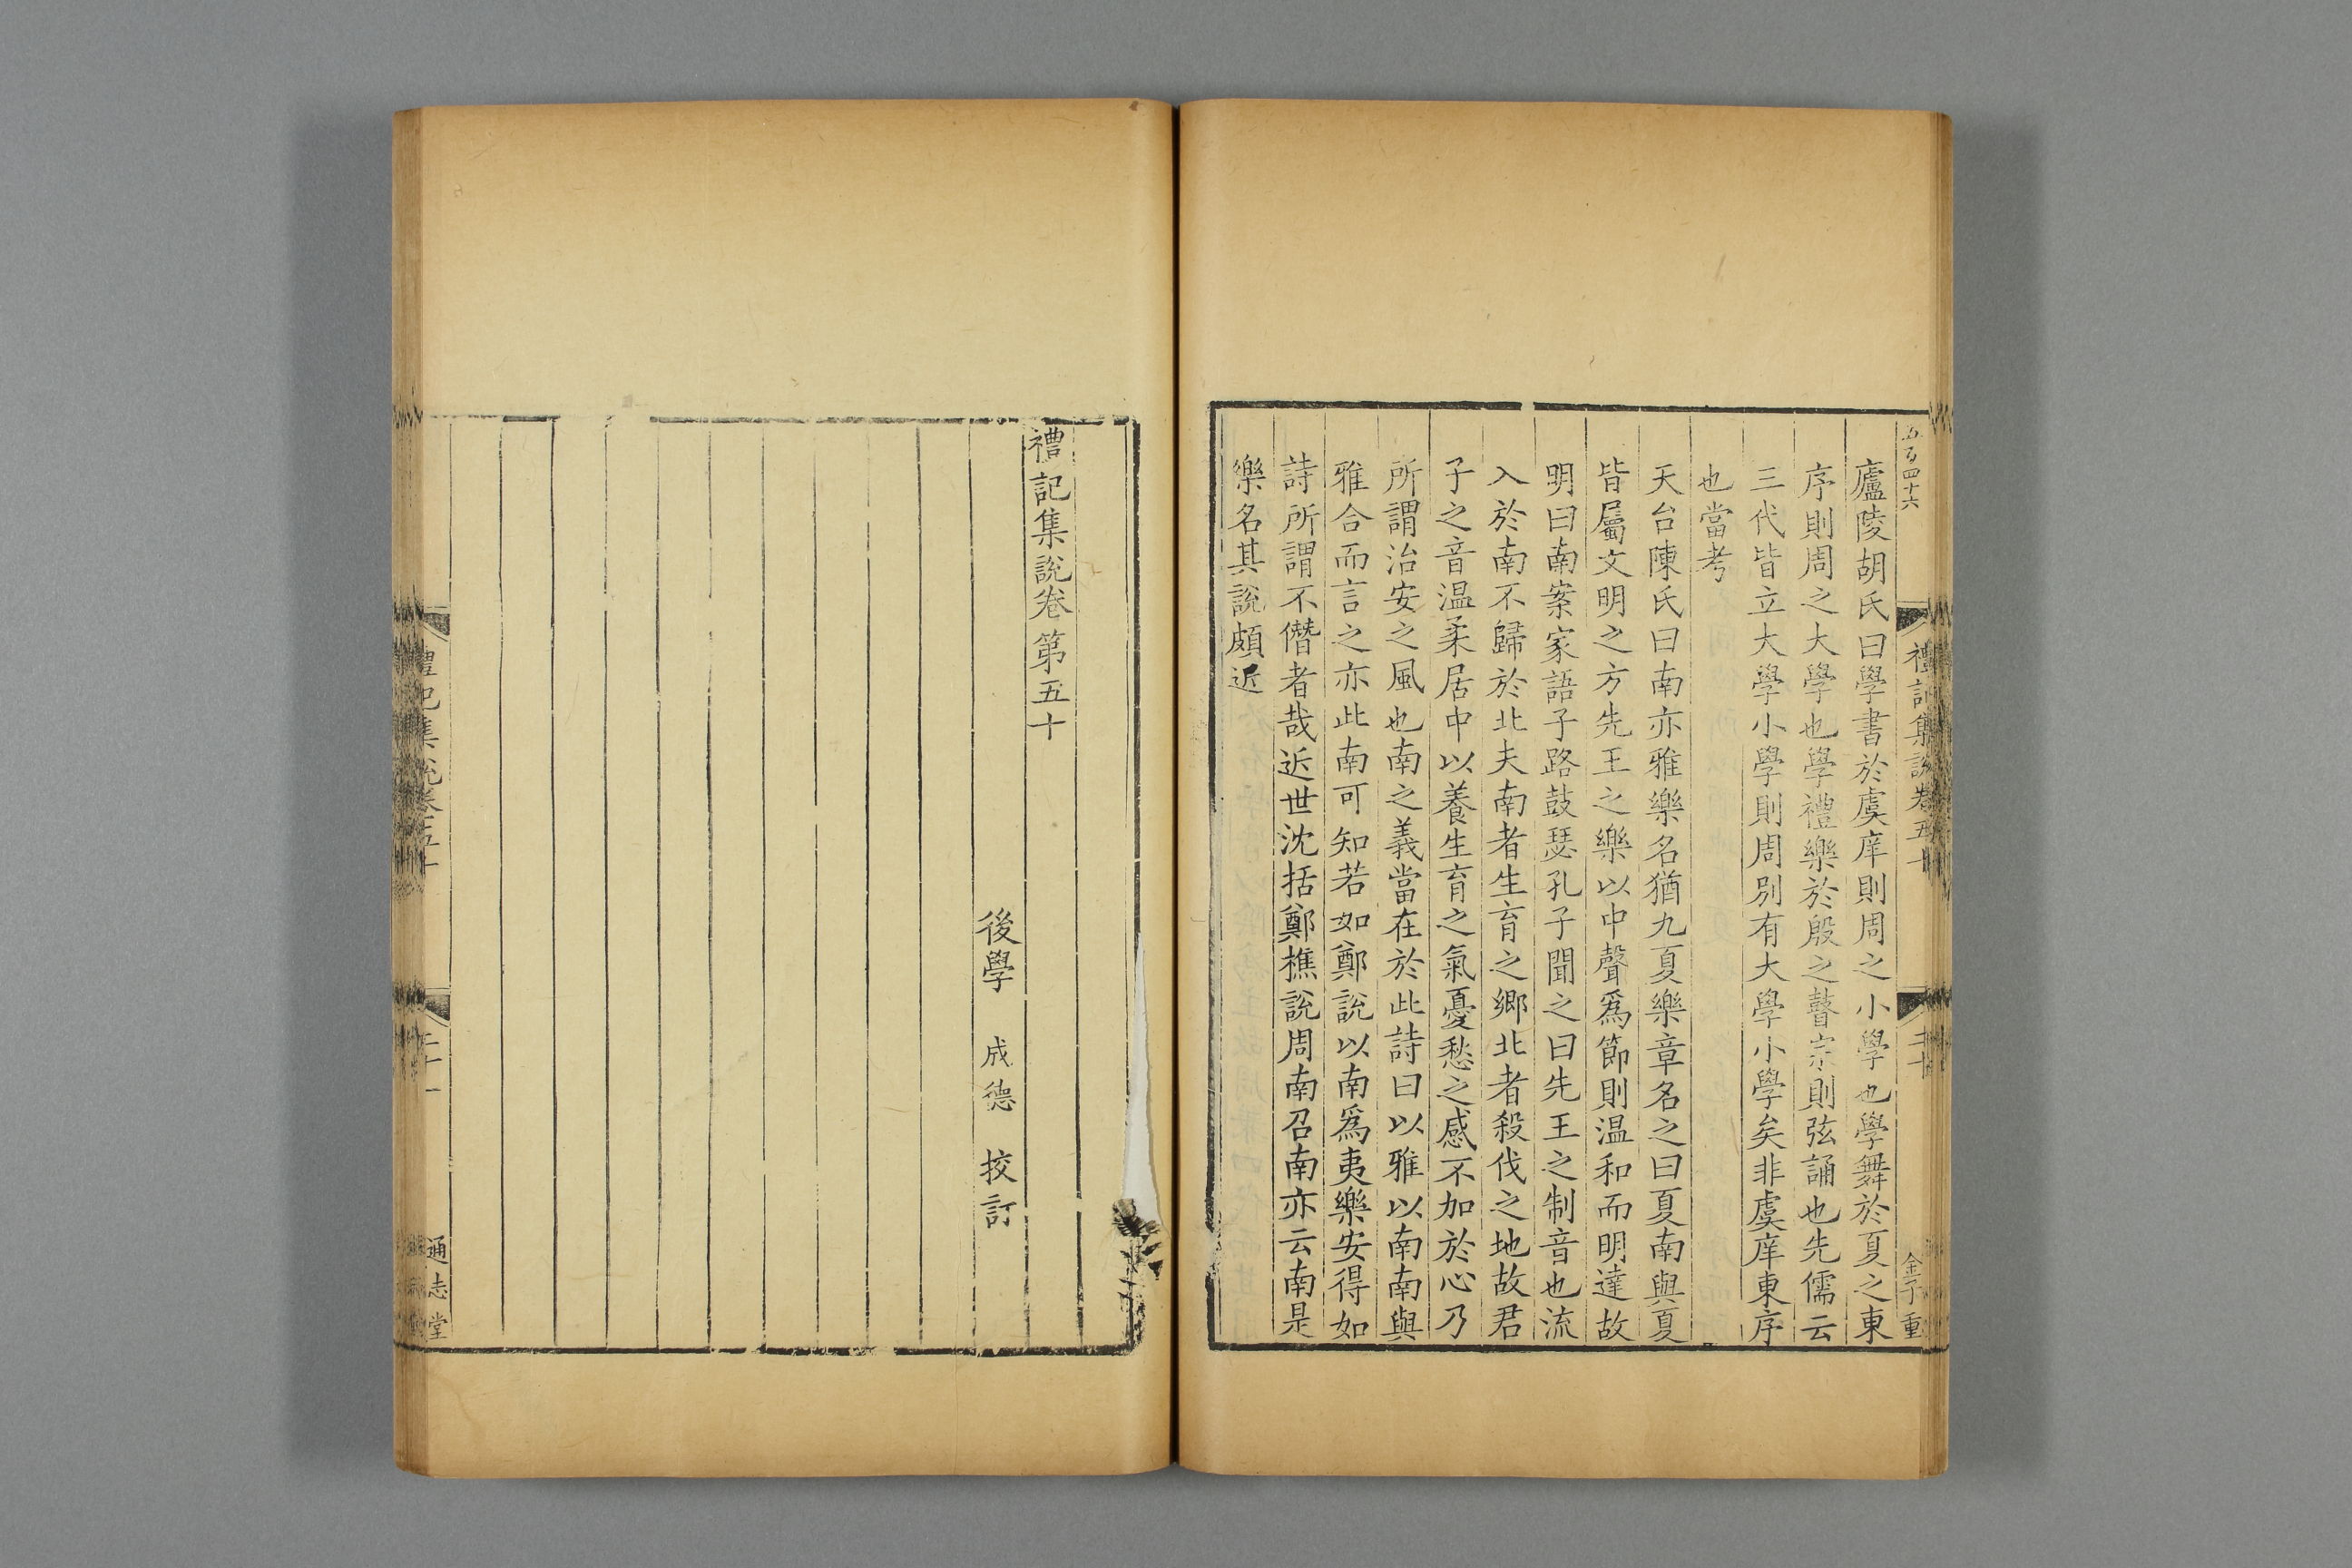 五百四十六
禮記集說卷五十
二十
金子重
廬陵胡氏曰學書於虞庠則周之小學也學舞於夏之東
序則周之大學也學禮樂於殷之瞽宗則弦誦也先儒云
三代皆立大學小學則周別有大學小學矣非虞庠東序
也當考
天台陳氏曰南亦雅樂名猶九夏樂章名之曰夏南與夏
皆屬文明之方先王之樂以中聲爲節則温和而明達故
明曰南案家語子路鼓瑟孔子聞之曰先王之制音也流
入於南不歸於北夫南者生育之鄉北者殺伐之地故君
子之音温柔居中以養生育之氣憂愁之感不加於心乃
所謂治安之風也南之義當在於此詩曰以雅以南南與
雅合而言之亦此南可知若如鄭說以南爲夷樂安得如
詩所謂不僭者哉近世沈括鄭樵說周南召南亦云南是
樂名其說頗近
禮記集說卷第五十
後學 成德 挍訂
禮記集說卷五十
二十一
通志堂